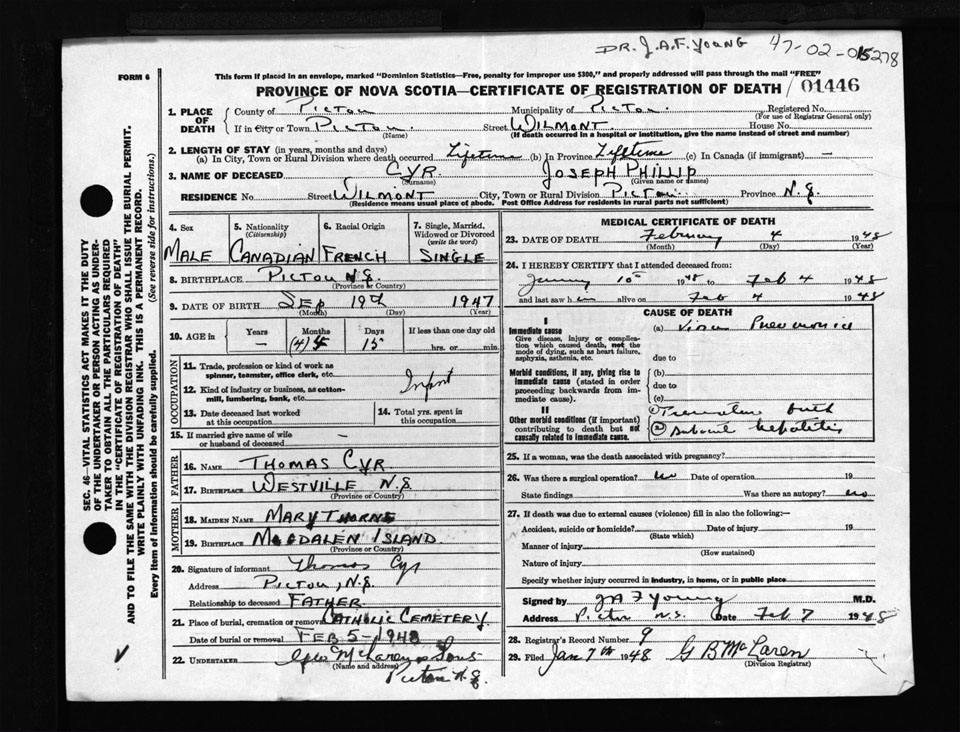 DR. J.A.F. YOUNG 47-02-015278
FORM 6
This form if placed in an envelope, marked "Dominion Statistics—Free, penalty for improper use $300," and properly addressed will pass through the mail "FREE"
PROVINCE OF NOVA SCOTIA—CERTIFICATE OF REGISTRATION OF DEATH / 01446
1. PLACE OF DEATH
County of PICTOU Municipality of PICTOU. Registered No.
(For use of Registrar General only)
If in City or Town PICTOU. (Name) Street WILMONT. House No.
(If death occurred in a hospital or institution, give the name instead of street and number)
2. LENGTH OF STAY (in years, months and days)
(a) In City, Town or Rural Division where death occurred Lifetime (b) In Province Lifetime (c) In Canada (if immigrant) —
3. NAME OF DECEASED CYR. (Surname) JOSEPH PHILLIP (Given name or names)
RESIDENCE No. Street WILMONT City, Town or Rural Division PICTOU. Province N.S.
(Residence means usual place of abode. Post Office Address for residents in rural parts not sufficient)
4. Sex MALE
5. Nationality (Citizenship) CANADIAN
6. Racial Origin FRENCH
7. Single, Married, Widowed or Divorced (write the word) SINGLE
8. BIRTHPLACE PICTOU N.S.
(Province or Country)
9. DATE OF BIRTH SEP 19th 1947
(Month) (Day) (Year)
10. AGE in Years — Months (4) Days 15 If less than one day old hrs. or min.
OCCUPATION
11. Trade, profession or kind of work as spinner, teamster, office clerk, etc.
12. Kind of industry or business, as cotton-mill, lumbering, bank, etc. Infant
13. Date deceased last worked at this occupation
14. Total yrs. spent in this occupation
15. If married give name of wife or husband of deceased —
FATHER
16. NAME THOMAS CYR.
17. BIRTHPLACE WESTVILLE N.S.
(Province or Country)
MOTHER
18. MAIDEN NAME MARY THORNE
19. BIRTHPLACE MAGDALEN ISLAND.
(Province or Country)
20. Signature of informant Thomas Cyr
Address PICTOU, N.S.
Relationship to deceased FATHER.
21. Place of burial, cremation or removal CATHOLIC CEMETERY.
Date of burial or removal FEB 5-1948
22. UNDERTAKER Geo McLaren & Sons
(Name and address)
Pictou N.S.
MEDICAL CERTIFICATE OF DEATH
23. DATE OF DEATH February 4 1948
(Month) (Day) (Year)
24. I HEREBY CERTIFY that I attended deceased from:
10 1948 to Feb 4 1948
and last saw him alive on Feb 4 1948
CAUSE OF DEATH
I
Immediate cause
Give disease, injury or complication which caused death, not the mode of dying, such as heart failure, asphyxia, asthenia, etc.
(a) Virus Pneumonia
due to
Morbid conditions, if any, giving rise to immediate cause (stated in order proceeding backwards from immediate cause).
(b)
due to
(c)
II
Other morbid conditions (if important) contributing to death but not causally related to immediate cause.
① Premature birth
② hepatitis
25. If a woman, was the death associated with pregnancy?
26. Was there a surgical operation? no Date of operation 19
State findings Was there an autopsy? no
27. If death was due to external causes (violence) fill in also the following:—
Accident, suicide or homicide? Date of injury 19
(State which)
Manner of injury
(How sustained)
Nature of injury
Specify whether injury occurred in industry, in home, or in public place
Signed by JAF Young M.D.
Address Pictou N.S. Date Feb 7 1948
28. Registrar's Record Number 9
29. Filed Jan 7th 1948 G B McLaren
(Division Registrar)
SEC. 46—VITAL STATISTICS ACT MAKES IT THE DUTY
OF THE UNDERTAKER OR PERSON ACTING AS UNDER-
TAKER TO OBTAIN ALL THE PARTICULARS REQUIRED
IN THE "CERTIFICATE OF REGISTRATION OF DEATH"
AND TO FILE THE SAME WITH THE DIVISION REGISTRAR WHO SHALL ISSUE THE BURIAL PERMIT.
WRITE PLAINLY WITH UNFADING INK. THIS IS A PERMANENT RECORD.
Every item of information should be carefully supplied. (See reverse side for instructions.)